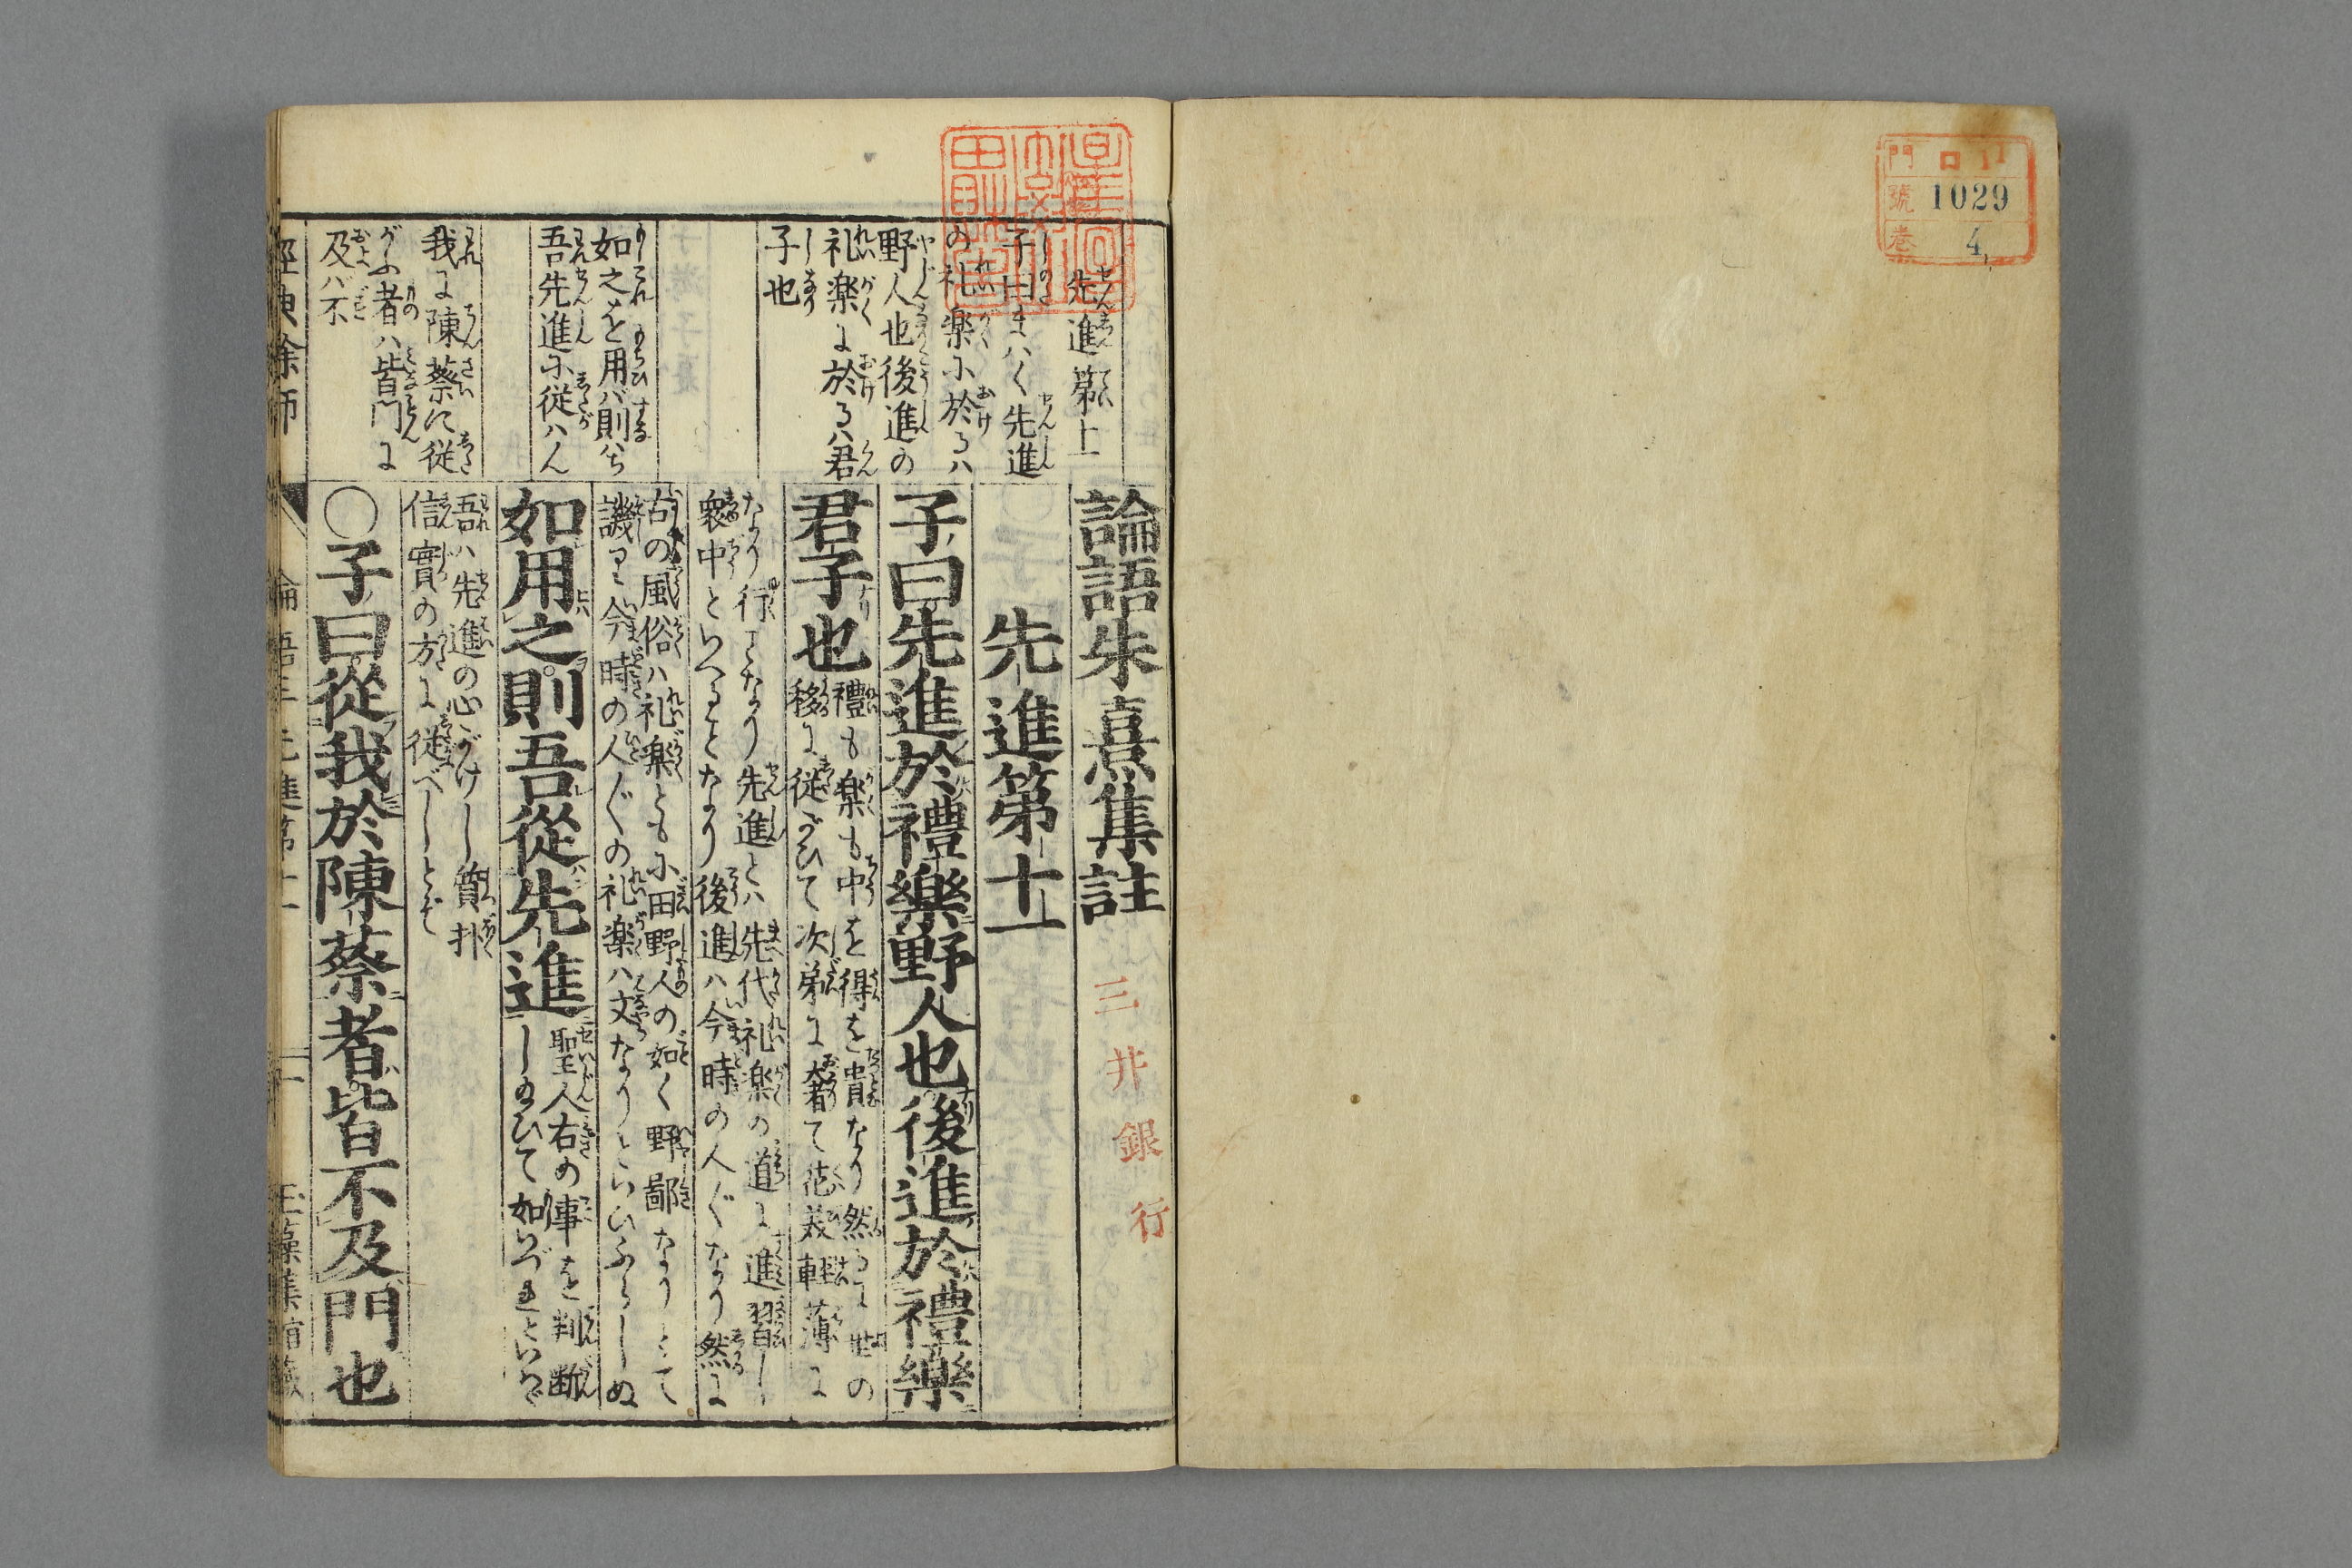 門 ロ 11
號 1029
巻 4
先進第十一
子曰まハく先進
の礼楽に於るハ
野人也後進の
礼楽に於るハ君
子也
如之を用バ則ハち
吾先進に従ハん
我に陳蔡に従
がふ者ハ皆門に
及バ不
論語朱熹集註
三井銀行
先進第十一
子曰先進於禮樂野人也後進於禮樂
君子也
禮も楽も中を得を貴なり然るに世の
移に従がひて次第に奢て花美軽薄に
なり行てなり先進とハ先代礼楽の道に進習し
衆中といへることなり後進ハ今時の人〴〵なり然に
古の風俗ハ礼楽ともに田野人の如く野鄙なりとて
譏り今時の人〴〵の礼楽ハ文なりといひふらしぬ
如用之則吾從先進
聖人右の事を判断
しのひて如いづれといハゞ
吾ハ先進の心がけし質朴
信實の方に従べしとぞ
○子曰從我於陳蔡者皆不及門也
經典余師
論語三先進第十一